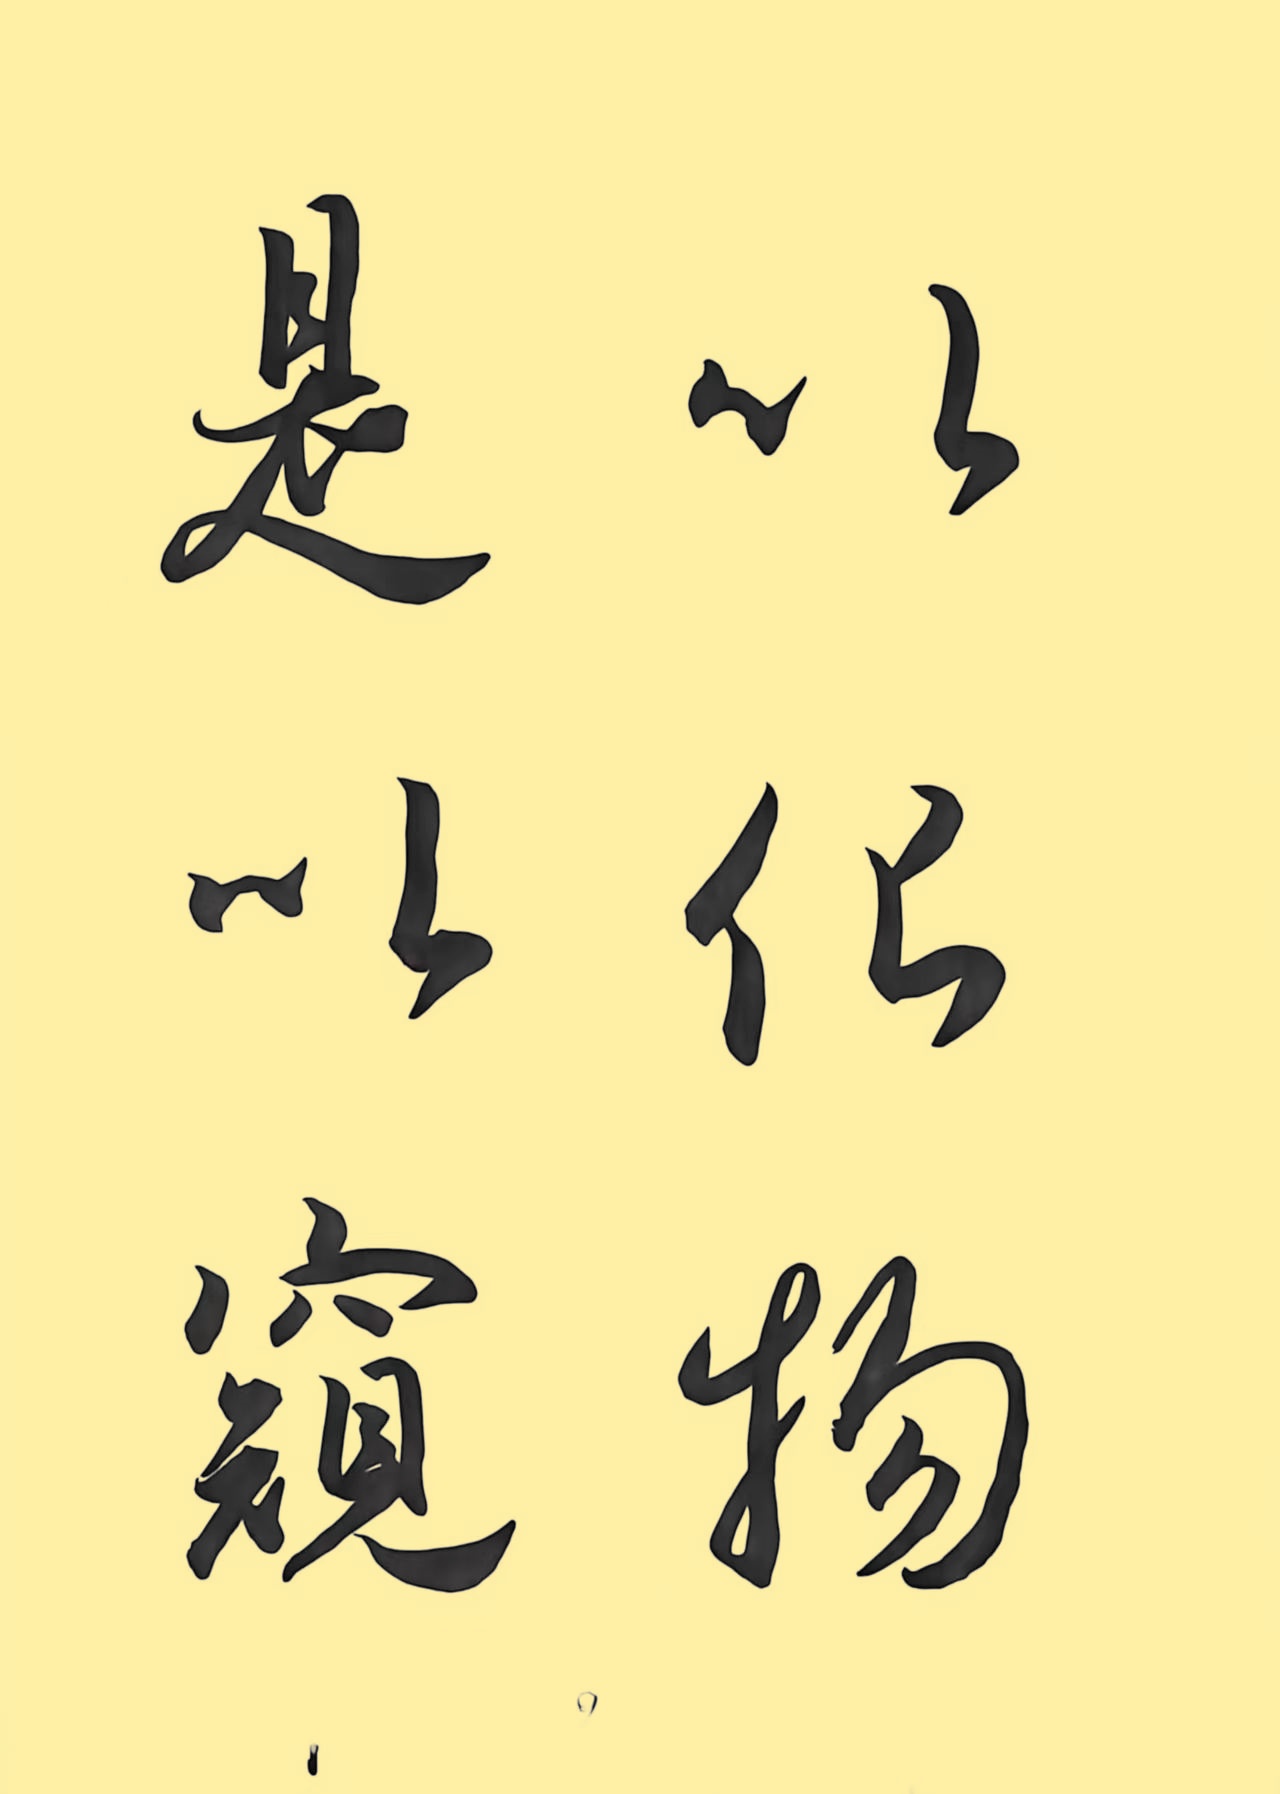 以化物
是以窺